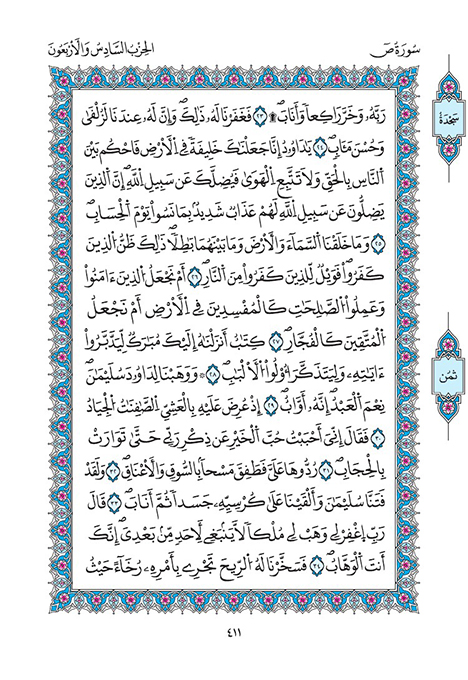 سُورَةُ صٓ
الحِزْبُ السَّادِسُ وَالْأَرْبَعُونَ
رَبَّهُۥ وَخَرَّ رَاكِعاً وَأَنَابَ ۩ ٢٣ فَغَفَرْنَا لَهُۥ ذَٰلِكَ وَإِنَّ لَهُۥ عِندَنَا لَزُلْفَىٰ
وَحُسْنَ مَـَٔابٍ ٢٤ يَٰدَاوُۥدُ إِنَّا جَعَلْنَٰكَ خَلِيفَةً فِے اِ۬لْأَرْضِ فَاحْكُم بَيْنَ
اَ۬لنَّاسِ بِالْحَقِّ وَلَا تَتَّبِعِ اِ۬لْهَوَىٰ فَيُضِلَّكَ عَن سَبِيلِ اِ۬للَّهِ إِنَّ اَ۬لذِينَ
يَضِلُّونَ عَن سَبِيلِ اِ۬للَّهِ لَهُمْ عَذَابٌ شَدِيدُۢ بِمَا نَسُواْ يَوْمَ اَ۬لْحِسَابِ
٢٥ وَمَا خَلَقْنَا اَ۬لسَّمَآءَ وَالْأَرْضَ وَمَا بَيْنَهُمَا بَٰطِلاً ذَٰلِكَ ظَنُّ اُ۬لذِينَ
كَفَرُواْ فَوَيْلٌ لِّلذِينَ كَفَرُواْ مِنَ اَ۬لنَّارِ ٢٦ أَمْ نَجْعَلُ اُ۬لذِينَ ءَامَنُواْ
وَعَمِلُواْ اُ۬لصَّٰلِحَٰتِ كَالْمُفْسِدِينَ فِے اِ۬لْأَرْضِ أَمْ نَجْعَلُ
اُ۬لْمُتَّقِينَ كَالْفُجَّارِ ٢٧ كِتَٰبٌ أَنزَلْنَٰهُ إِلَيْكَ مُبَٰرَكٌ لِّيَدَّبَّرُواْ
ءَايَٰتِهِۦ وَلِيَتَذَكَّرَ أُوْلُواْ اُ۬لْأَلْبَٰبِ ٢٨ ۞ وَوَهَبْنَا لِدَاوُۥدَ سُلَيْمَٰنَ
نِعْمَ اَ۬لْعَبْدُ إِنَّهُۥ أَوَّابٌ ٢٩ إِذْ عُرِضَ عَلَيْهِ بِالْعَشِيِّ اِ۬لصَّٰفِنَٰتُ اُ۬لْجِيَادُ
٣٠ فَقَالَ إِنِّيَ أَحْبَبْتُ حُبَّ اَ۬لْخَيْرِ عَن ذِكْرِ رَبِّے حَتَّىٰ تَوَارَتْ
بِالْحِجَابِ ٣١ رُدُّوهَا عَلَيَّ فَطَفِقَ مَسْحاَۢ بِالسُّوقِ وَالْأَعْنَاقِ ٣٢ وَلَقَدْ
فَتَنَّا سُلَيْمَٰنَ وَأَلْقَيْنَا عَلَىٰ كُرْسِيِّهِۦ جَسَداً ثُمَّ أَنَابَ ٣٣ قَالَ
رَبِّ اِ۪غْفِرْ لِے وَهَبْ لِے مُلْكاً لَّا يَنۢبَغِے لِأَحَدٍ مِّنۢ بَعْدِيَ إِنَّكَ
أَنتَ اَ۬لْوَهَّابُ ٣٤ فَسَخَّرْنَا لَهُ اُ۬لرِّيحَ تَجْرِے بِأَمْرِهِۦ رُخَآءً حَيْثُ
سَجْدَةٌ
ثُمُن
٤١١